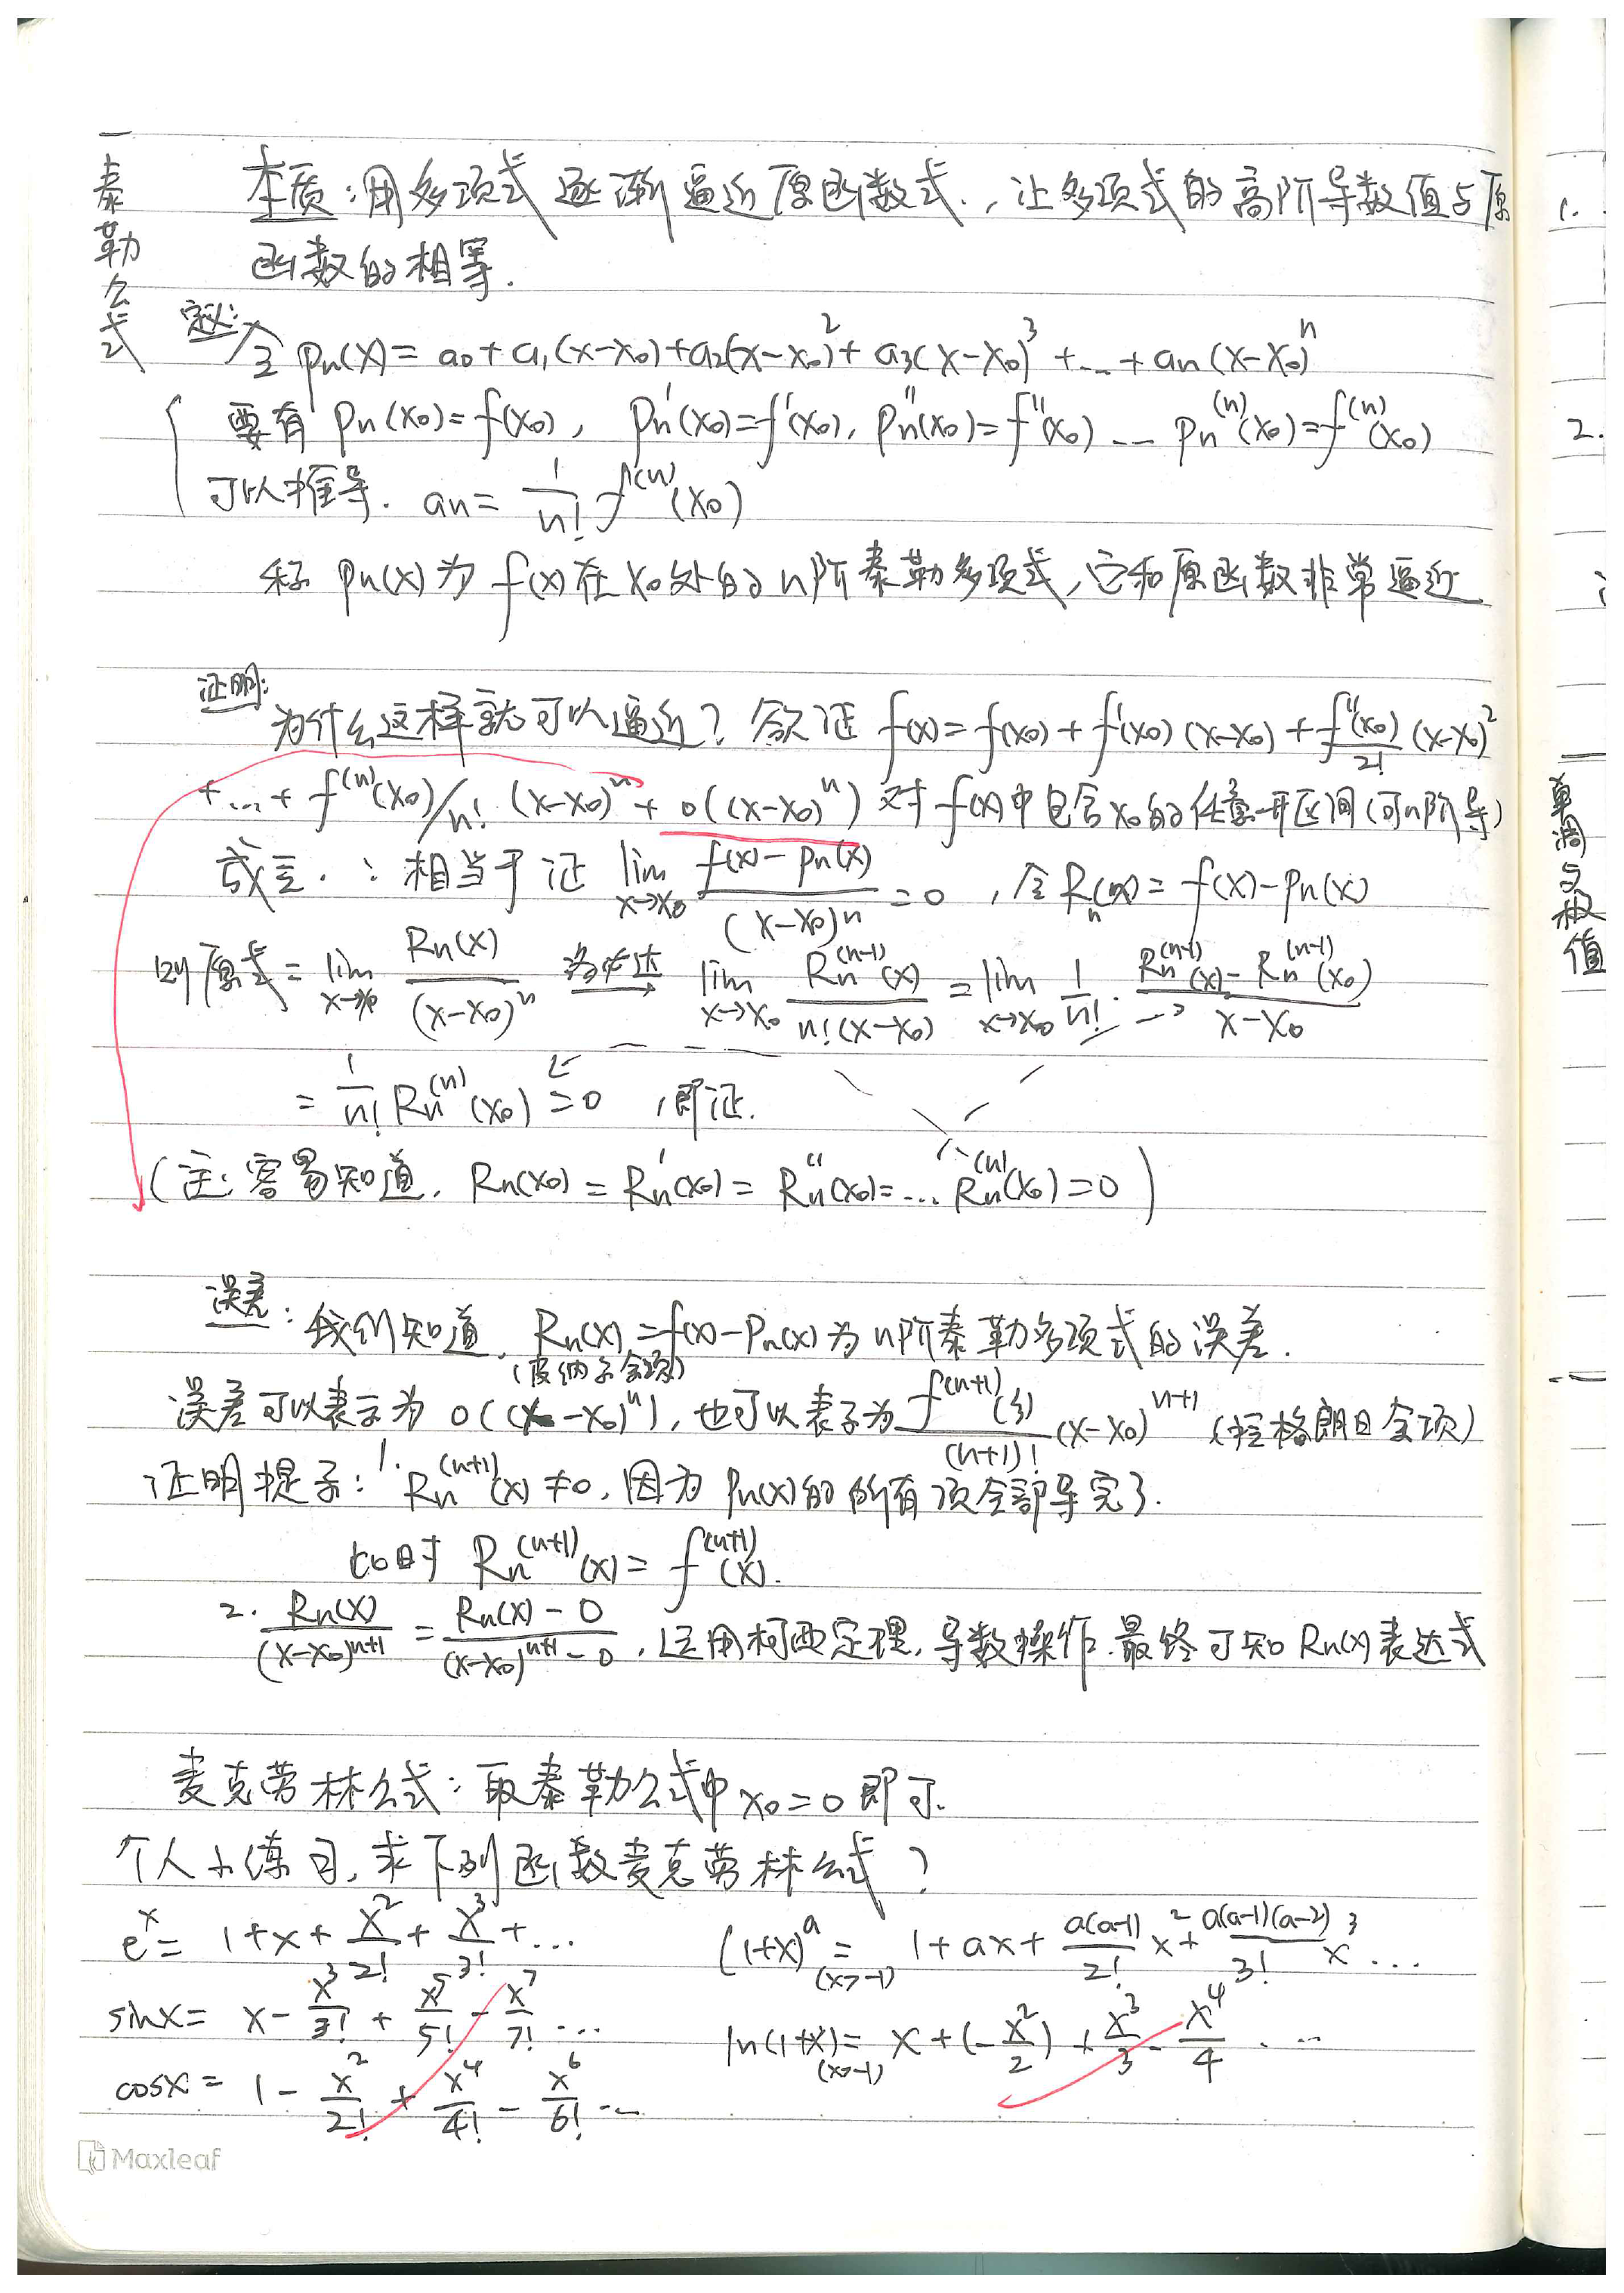 泰勒公式
本质：用多项式逐渐逼近原函数式.，让多项式的高阶导数值与原
函数的相等.
定义：
令 Pn(x) = a₀ + a₁(x-x₀) + a₂(x-x₀)² + a₃(x-x₀)³ + ... + an(x-x₀)ⁿ
要有 Pn(x₀) = f(x₀), Pn'(x₀) = f'(x₀), Pn''(x₀) = f''(x₀) ... Pn⁽ⁿ⁾(x₀) = f⁽ⁿ⁾(x₀)
可以推导. an = 1/n! f⁽ⁿ⁾(x₀)
称 Pn(x) 为 f(x) 在 x₀ 处的 n阶泰勒多项式, 它和原函数非常逼近
证明：
为什么这样就可以逼近？欲证 f(x) = f(x₀) + f'(x₀)(x-x₀) + f''(x₀)/2! (x-x₀)²
+ ... + f⁽ⁿ⁾(x₀)/n! (x-x₀)ⁿ + o((x-x₀)ⁿ) 对 f(x)中包含x₀的任意开区间(可n阶导)
成立. ∴ 相当于证 lim x→x₀ (f(x)-Pn(x))/(x-x₀)ⁿ = 0 , 令 Rn(x) = f(x)-Pn(x)
则原式 = lim x→x₀ Rn(x)/(x-x₀)ⁿ 洛必达→ lim x→x₀ Rn⁽ⁿ⁻¹⁾(x)/n!(x-x₀) = lim x→x₀ 1/n! · (Rn⁽ⁿ⁻¹⁾(x) - Rn⁽ⁿ⁻¹⁾(x₀))/(x-x₀)
= 1/n! Rn⁽ⁿ⁾(x₀) = 0 , 即证.
(注: 容易知道, Rn(x₀) = Rn'(x₀) = Rn''(x₀) = ... Rn⁽ⁿ⁾(x₀) = 0)
误差：我们知道, Rn(x) = f(x)-Pn(x) 为 n阶泰勒多项式的误差.
(皮纳尔余项)
误差可以表示为 o((x-x₀)ⁿ), 也可以表示为 f⁽ⁿ⁺¹⁾(ξ)/(n+1)! (x-x₀)ⁿ⁺¹ (拉格朗日余项)
证明提示: 1. Rn⁽ⁿ⁺¹⁾(x) ≠ 0, 因为 Pn(x)的所有项全部导完了.
此时 Rn⁽ⁿ⁺¹⁾(x) = f⁽ⁿ⁺¹⁾(x).
2. Rn(x)/(x-x₀)ⁿ⁺¹ = (Rn(x)-0)/((x-x₀)ⁿ⁺¹-0), 运用柯西定理, 导数操作. 最终可知 Rn(x)表达式
麦克劳林公式: 取泰勒公式中 x₀=0 即可.
个人小练习, 求下列函数麦克劳林公式？
eˣ = 1+x+ x²/2! + x³/3! + ...
(1+x)ᵃ = 1+ax+ a(a-1)/2! x² + a(a-1)(a-2)/3! x³ ...
(x>-1)
sinx = x - x³/3! + x⁵/5! - x⁷/7! ...
ln(1+x) = x+(-x²/2) + x³/3 - x⁴/4 ...
(x>-1)
cosx = 1 - x²/2! + x⁴/4! - x⁶/6! ...
Maxleaf
1.
2.
单调与极值